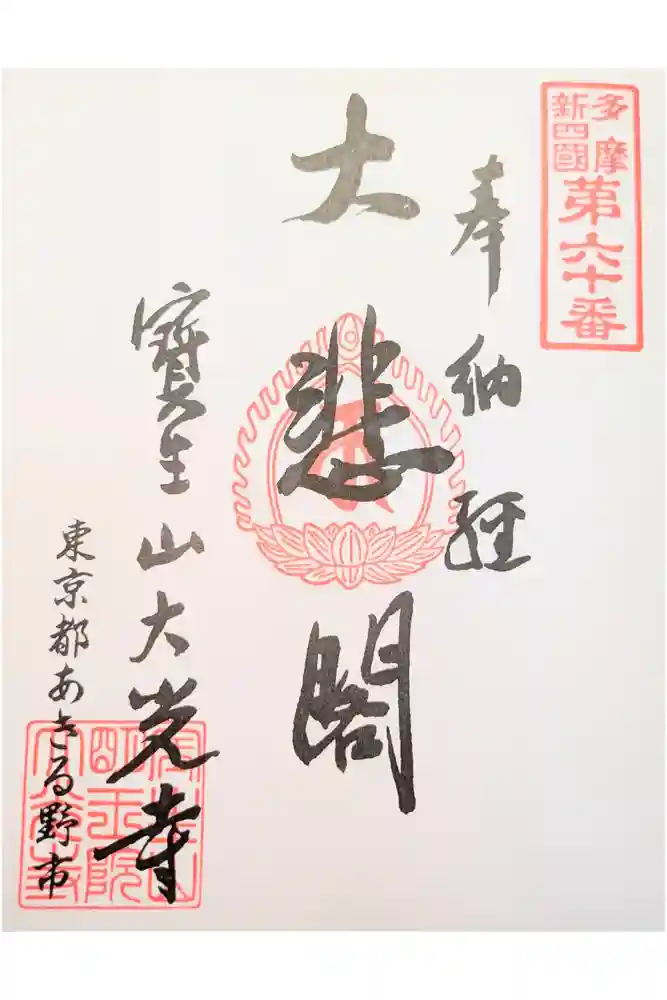 多摩
新四國
第六十番
奉納経
大悲閣
寶生山大光寺
東京都あきる野市